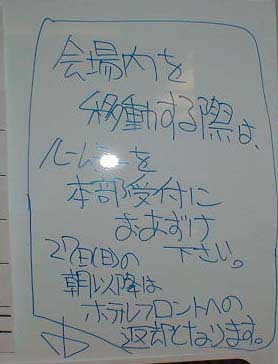 会場内を
移動する際は、
ルームキーを
本部受付に
おあずけ
下さい。
27日(日)の
朝以降は
ホテルフロントへの
返却となります。